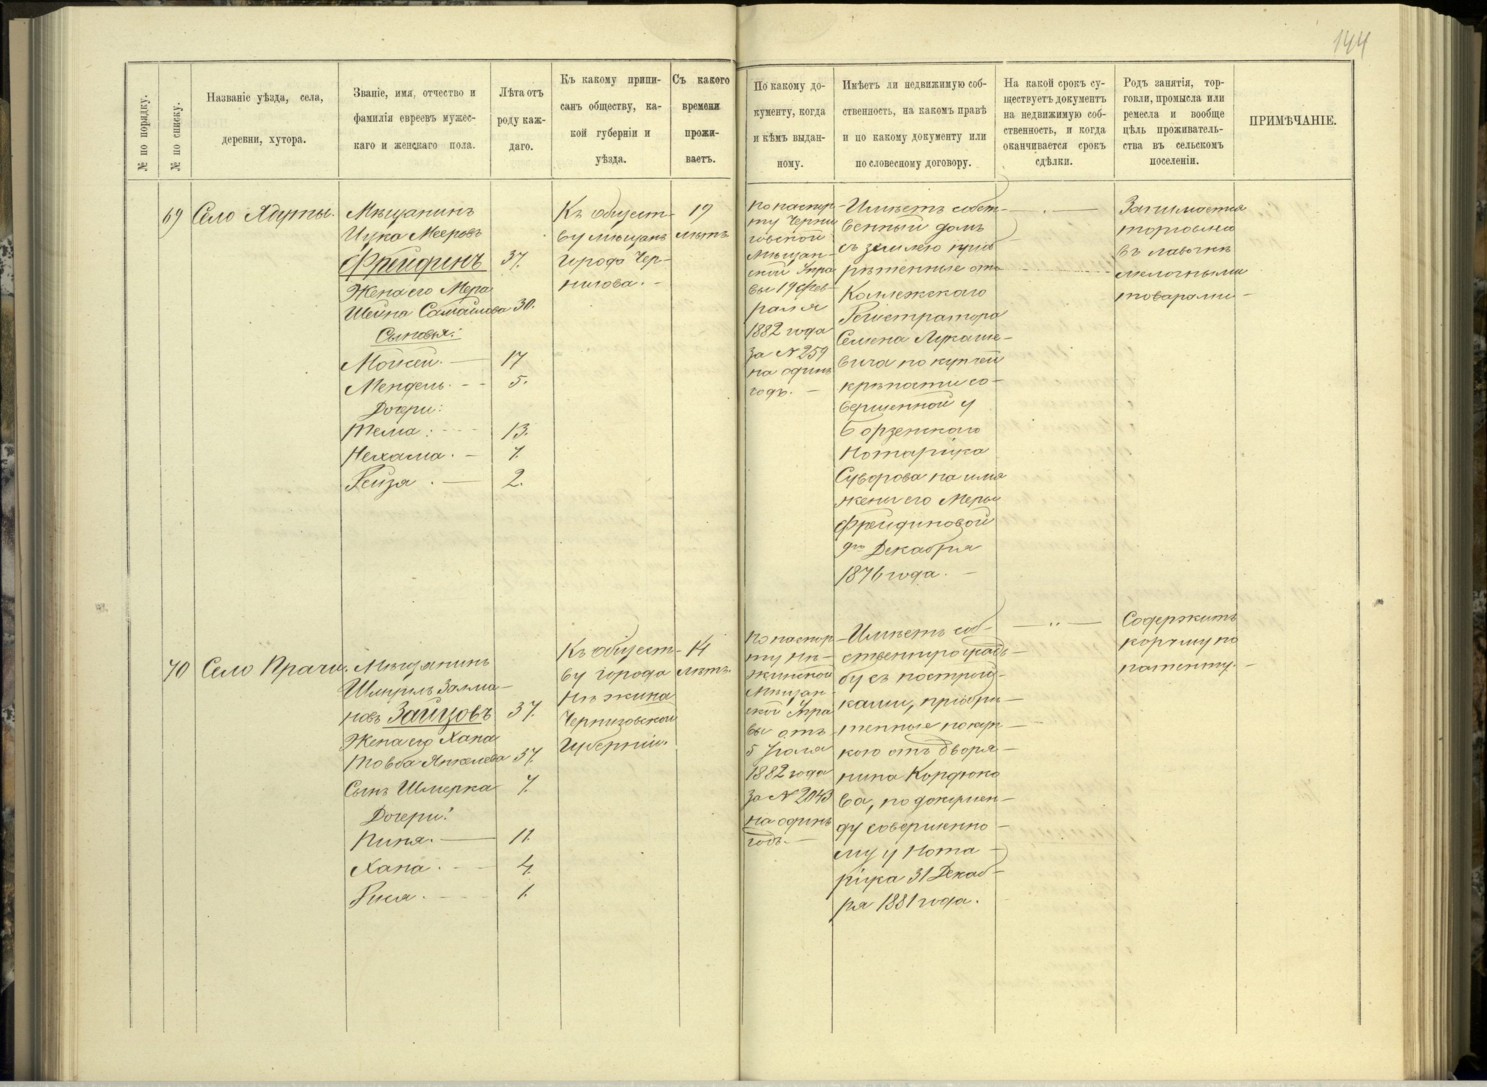 144
№ по порядку.
№ по списку.
Названіе уѣзда, села,
деревни, хутора.
Званіе, имя, отчество и
фамилія евреевъ мужес-
каго и женскаго пола.
Лѣта отъ
роду каж-
даго.
Къ какому припи-
санъ обществу, ка-
кой губерніи и
уѣзда.
Съ какого
времени
прожи-
ваетъ.
По какому до-
кументу, когда
и кѣмъ выдан-
ному.
Имѣетъ ли недвижимую соб-
ственность, на какомъ правѣ
и по какому документу или
по словесному договору.
На какой срокъ су-
ществуетъ документъ
на недвижимую соб-
ственность, и когда
оканчивается срокъ
сдѣлки.
Родъ занятія, тор-
говли, промысла или
ремесла и вообще
цѣль проживатель-
ства въ сельскомъ
поселеніи.
ПРИМѢЧАНІЕ.
69
Село Ядуты.
Мѣщанинъ
Ицка Мееровъ
Фрейдинъ 37.
Жена его Мера
Шейна Самайлова 30.
Сыновья:
Мойсей. — 17
Мендель. - - 5.
Дочери:
Тема: - - - 13.
Нехама. — 7.
Рейзя. — 2.
Къ общест-
ву мѣщанъ
города Чер-
нигова. -
19
лѣтъ
По паспор-
ту Черни
говской
Мѣщан-
ской Упра
вы 19 фев
раля
1882 года
за № 259
на одинъ
годъ. —
Имѣетъ собст-
венный домъ
съ землею приоб
рѣтенные отъ
Коллежскаго
Регистратора
Семена Лукаше-
вича по купчей
крѣпости со-
вершенной у
Борзенскаго
Нотаріуса
Суворова на имя
жены его Меры
Фрейдиновой
9го Декабря
1876 года. —
Занимается
торговлею
въ лавочкѣ
мелочными
товарами —
70
Село Прачи.
Мѣщанинъ
Шмуиль Залма-
новъ Зайцовъ 37.
Жена его Хана
Товба Янкелева 37.
Сынъ Шмерка 7.
Дочери:
Пиня. — 11.
Хана. - - 4.
Рися. - - - 1.
Къ общест-
ву города
Нѣжина
Черниговской
Губерніи.
14
лѣтъ
По паспор-
ту Нѣ-
жинской
Мѣщан-
ской Упра
вы отъ
5 Іюля
1882 года
за № 2043
на одинъ
годъ. —
Имѣетъ соб-
ственную усадь-
бу съ построй-
ками, пріобрѣ-
тенные покуп-
кою отъ дворя-
нина
ва, по докумен-
ту совершенно-
му у Нота-
ріуса 31 Декаб-
ря 1881 года.
Содержитъ
корчму по
патенту. —